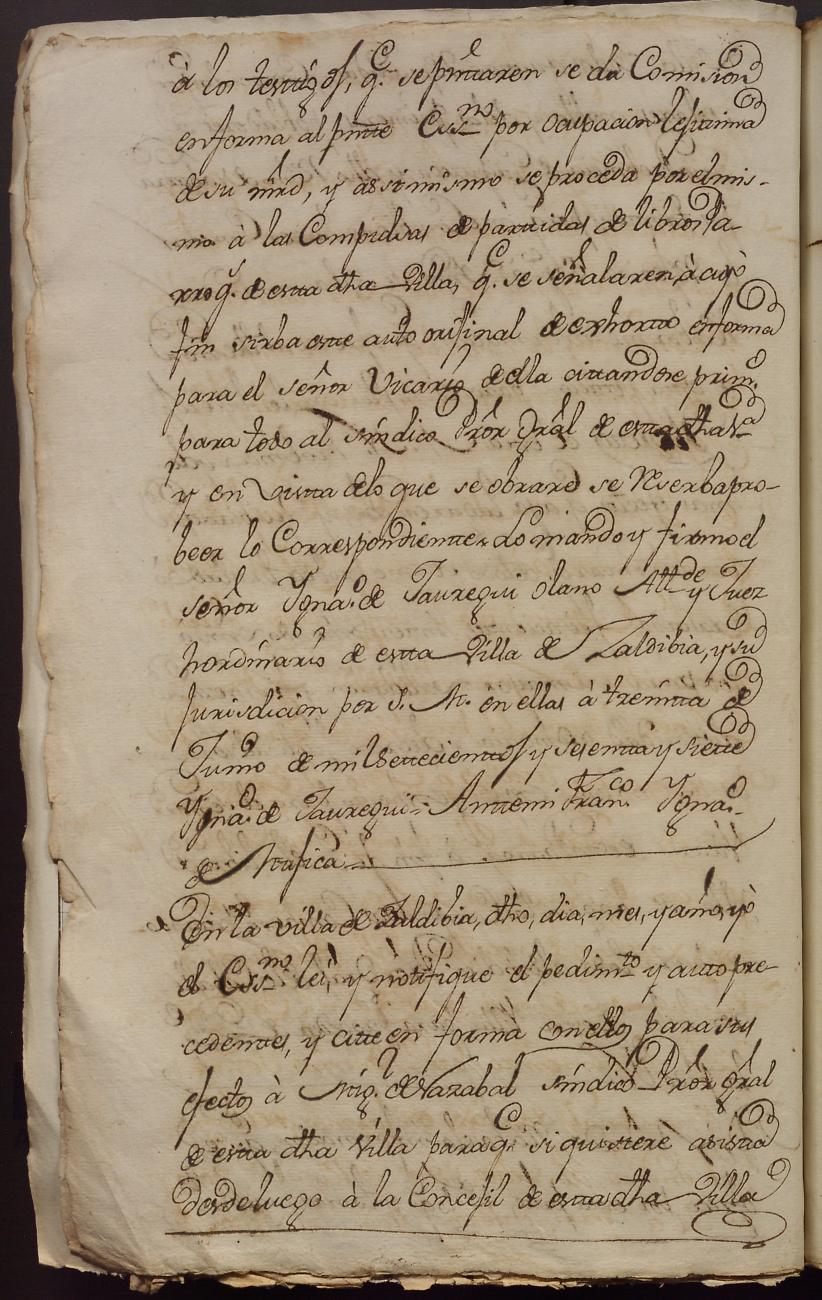 à los testigos, q.e se pntaren se da Comision
en forma al pntte Essno por ocupacion lejitima
de su mrd, y assimismo se proceda por el mis-
mo à las Compulsas de partidas de libros Pa-
rroq.s de estta dha Villa, q.e se señalaren, à cuyo
fin sirba este auto orijinal de exhortto en forma
para el señor Vicario de ella cittandose prim.o
para todo al sindico Pror Gral de estta dha V.a
y en vistta de lo que se obrare se reserba pro-
beer lo Correspondientte. Lo mando y firmo el
señor Ygna.o de Jauregui olano Alld.e y Juez
hordinario de estta Villa de Zaldibia, y su
Jurisdicion por S. M. en ella à treintta de
Junio de mil settecienttos y sesentta y siette
Ygna.o de Jauregui = Anttemi Fran.co Ygna.o
de
En la villa de Zaldibia, dho, dia, mes, y año, yo
el Essno lei, y notifique el pedim.to y auto pre-
cedenttes, y citte en forma con ellos para sus
efectos à Mig.l de sindico Pror Gral
de estta dha Villa para q.e si quisiere asistta
desde luego à la Concejil de estta dha Villa